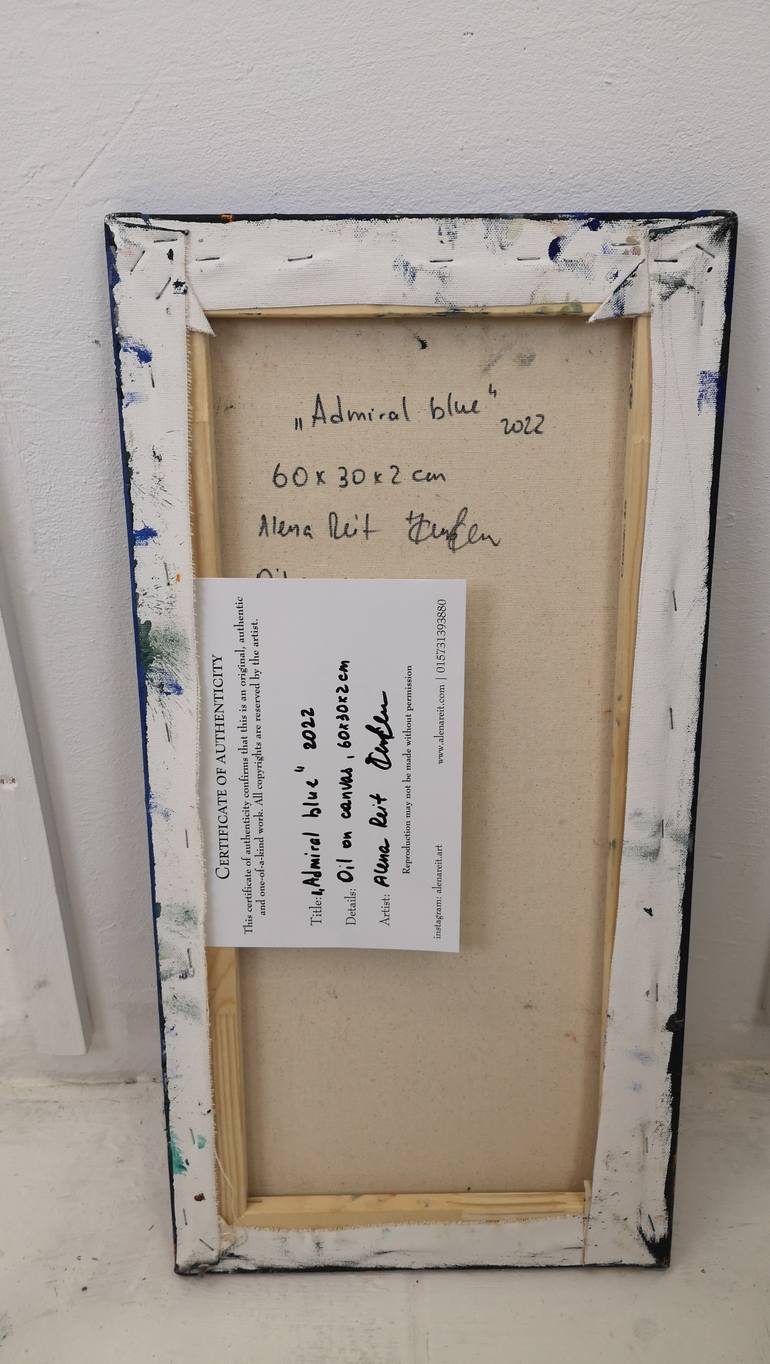 „Admiral blue“ 2022
60 x 30 x 2 cm
Alena Reit
CERTIFICATE OF AUTHENTICITY
This certificate of authenticity confirms that this is an original, authentic
and one-of-a-kind work. All copyrights are reserved by the artist.
Title: „Admiral blue“ 2022
Details: Oil on canvas, 60x30x2 cm
Artist: Alena Reit
Reproduction may not be made without permission
instagram: alenareit.art www.alenareit.com | 015731393880